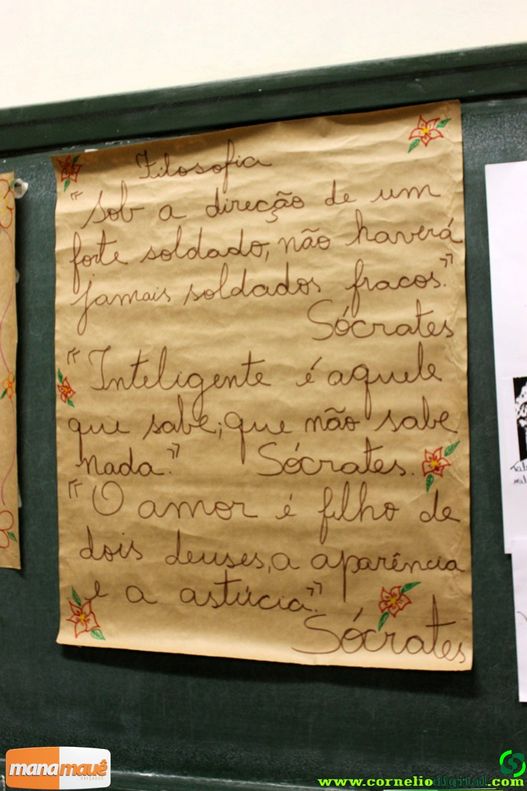 Filosofia
"Sob a direção de um
forte soldado, não haverá
jamais soldados fracos."
Sócrates
"Inteligente é aquele
que sabe, que não sabe
nada." Sócrates.
"O amor é filho de
dois deuses, a aparência
e a astúcia."
Sócrates
manamauê
www.corneliodigital.com